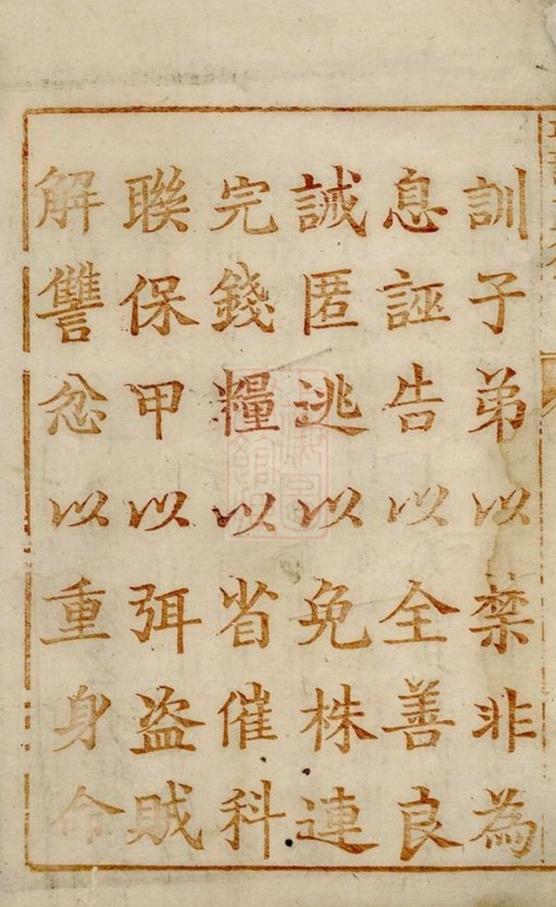 訓子弟以禁非為
息誣告以全善良
誡匿逃以免株連
完錢糧以省催科
聯保甲以弭盜賊
解讐忿以重身命